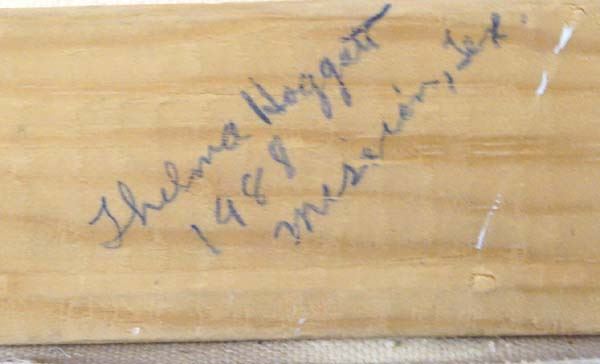 Thelma Hoggatt
1988
Mission, Tex.